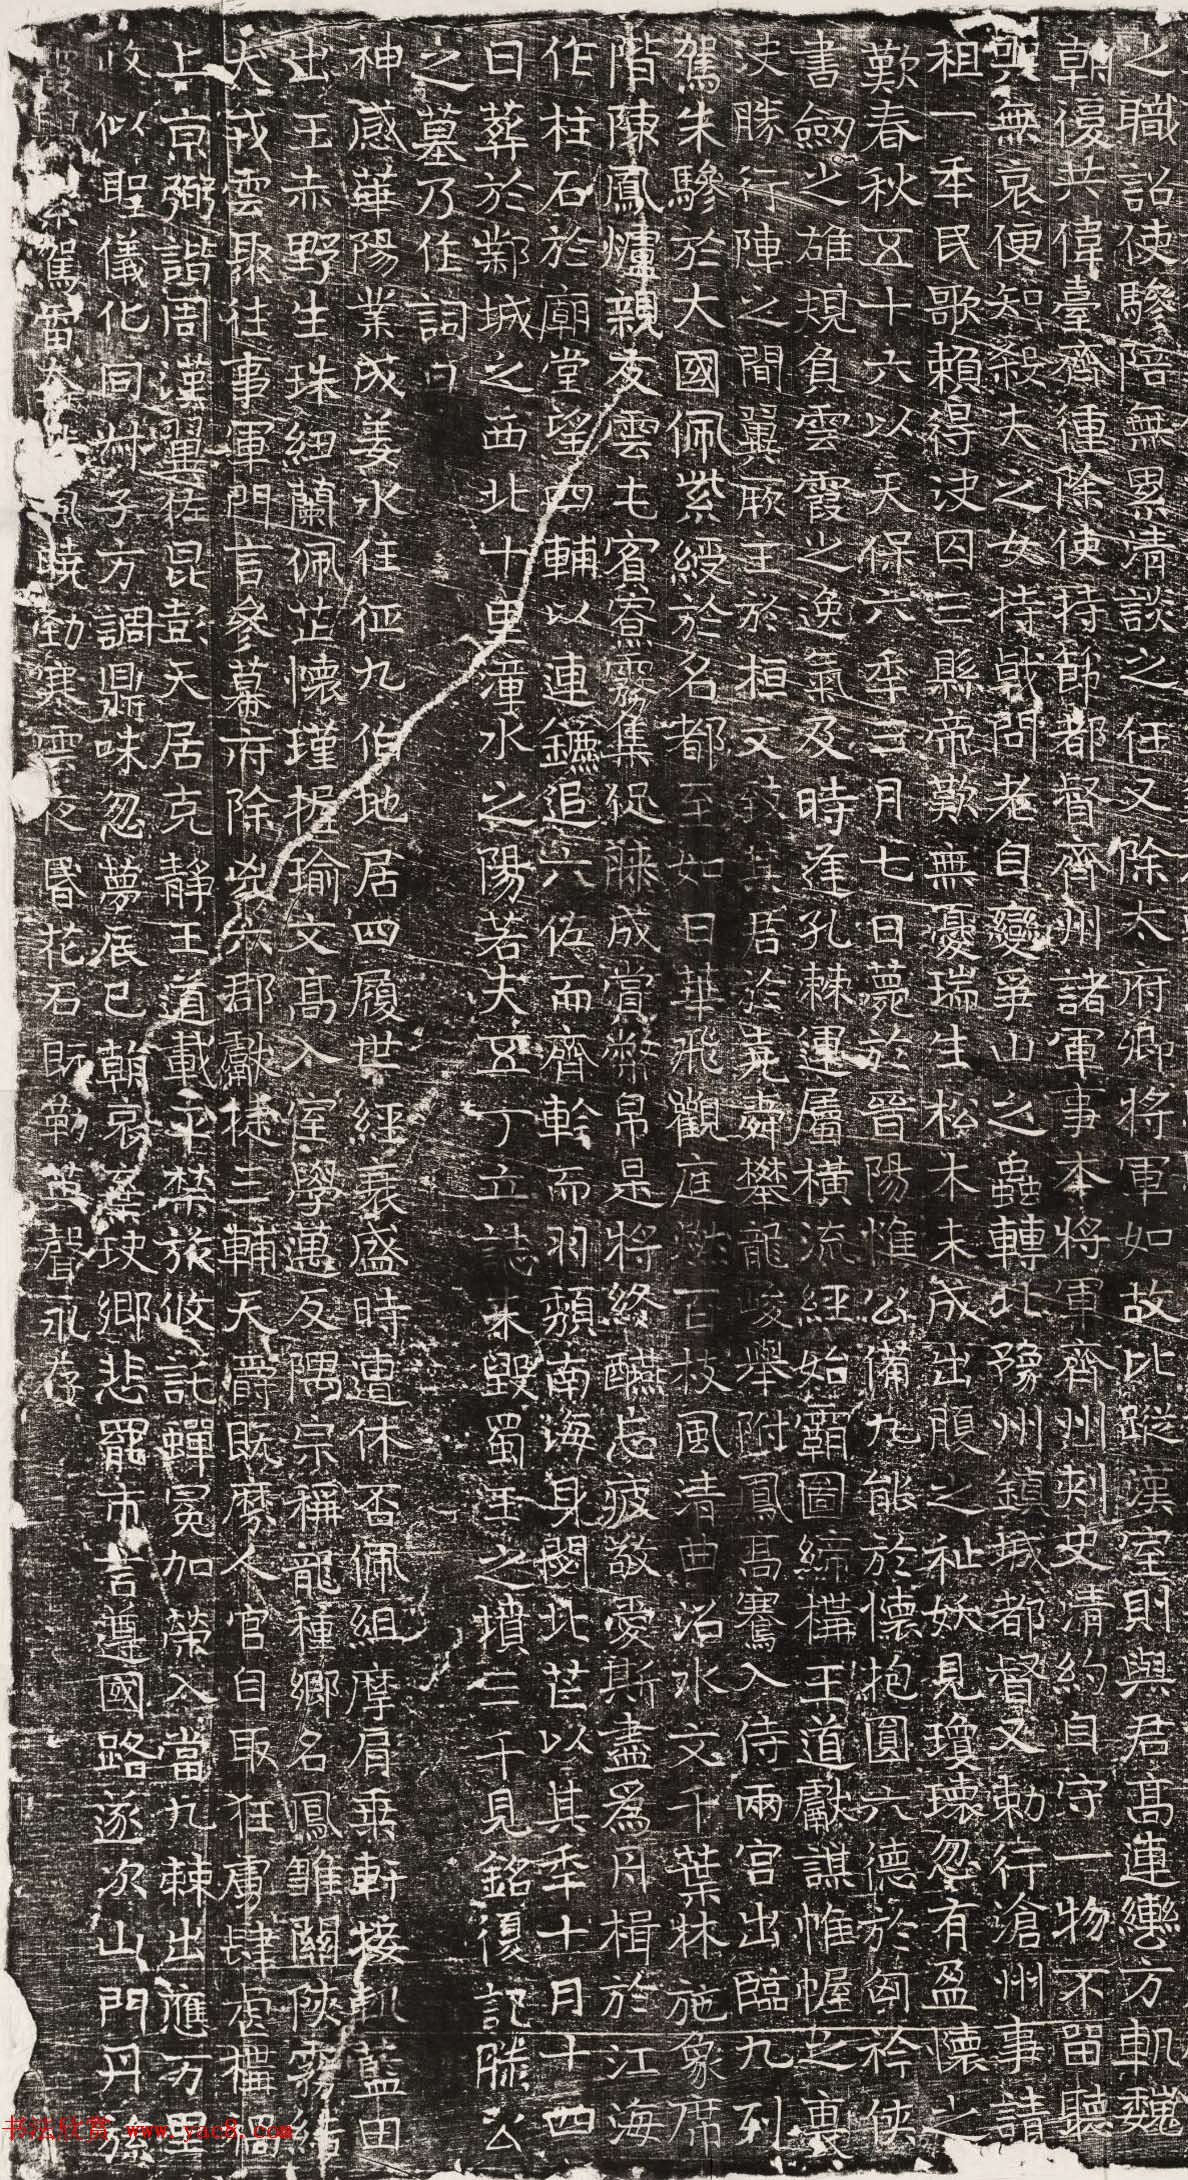 之職詔使驂陪無累清談之任又除太府卿將軍如故比蹤漢室則與君高連轡方軌魏
朝復共偉臺齊連除使持節都督齊州諸軍事本將軍齊州刺史清約自守一物不留聽
哭無哀便知殺夫之女持戟問老自變爭山之蟲轉北豫州鎮城都督又勅行滄州事請
租一年民歌賴得決囚三縣帝歎無憂瑞生松木未成出腹之祉妖見瓊瓌忽有盈懷之
歎春秋五十六以天保六年三月七日薨於晉陽惟公備九能於懷抱圓六德於匈衿俠
書劒之雄規負雲霞之逸氣及時逢孔棘運屬橫流經始霸圖締構王道獻謀帷幄之裏
決勝行陣之間翼厥主於桓文致其君於堯舜攀龍凌舉附鳳高騫入侍兩宮出臨九列
駕朱驂於大國佩紫綬於名都至如日華飛觀庭燃百枝風清曲沼水文千葉牀施象席
階陳鳳爐親友雲屯賓寮霧集促膝成賞幣帛是將終醼忘疲敬愛斯盡爲舟楫於江海
作柱石於廟堂望四輔以連鑣追六佐而齊幹而羽頹南海身閟北芒以其年十月十四
日葬於鄴城之西北十里漳水之陽若夫五丁立誌未毀蜀王之墳三千見銘復記滕公
之墓乃作詞曰
神感華陽業成姜水任征九伯地居四履世經衰盛時遭休否佩組摩肩乗軒接軌藍田
出玉赤野生珠紐蘭佩芷懷瑾握瑜文高入室學邁反隅宗稱龍種鄉名鳳雛關陝霧
大戎雲聚往事軍門言參幕府除兇六郡獻捷三輔天爵既縻人官自取狂虜肆虐
上京弼諧周漢翼佐昆彭天居克靜王道載平禁旅攸託蟬冕加榮入當九棘出應万里
政似聖儀化同州子方調鼎味忽夢辰巳朝哀玦鄉悲罷市言遵國路遂次山門丹
駕留風曉勁寒雲夜昬花石既勒英聲永存
书法欣赏 www.yac8.com